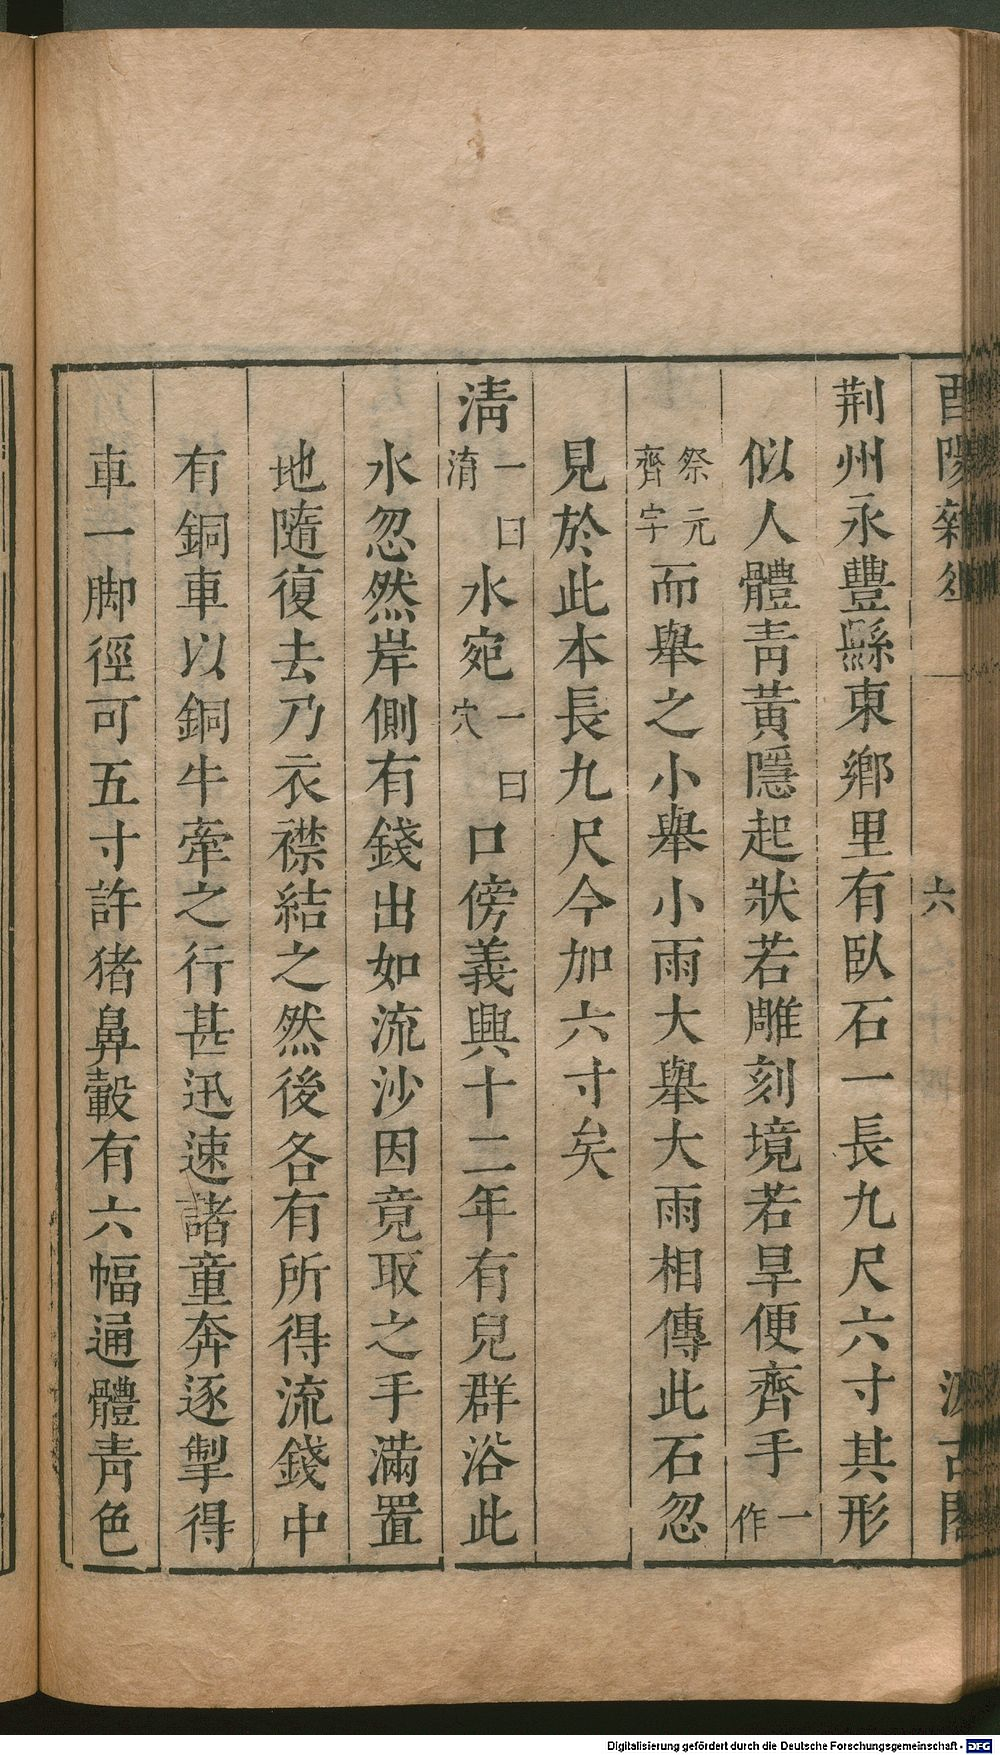 酉陽雜俎
六
汲古閣
荆州永豐縣東鄉里有臥石一長九尺六寸其形
似人體靑黃隱起狀若雕刻境若旱便齊手一作
祭元齊字而舉之小舉小雨大舉大雨相傳此石忽
見於此本長九尺今加六寸矣
淸一曰淯水宛一曰穴口傍義興十二年有兒群浴此
水忽然岸側有錢出如流沙因竟取之手滿置
地隨復去乃衣襟結之然後各有所得流錢中
有銅車以銅牛牽之行甚迅速諸童奔逐掣得
車一脚徑可五寸許猪鼻轂有六幅通體靑色
Digitalisierung gefördert durch die Deutsche Forschungsgemeinschaft - DFG